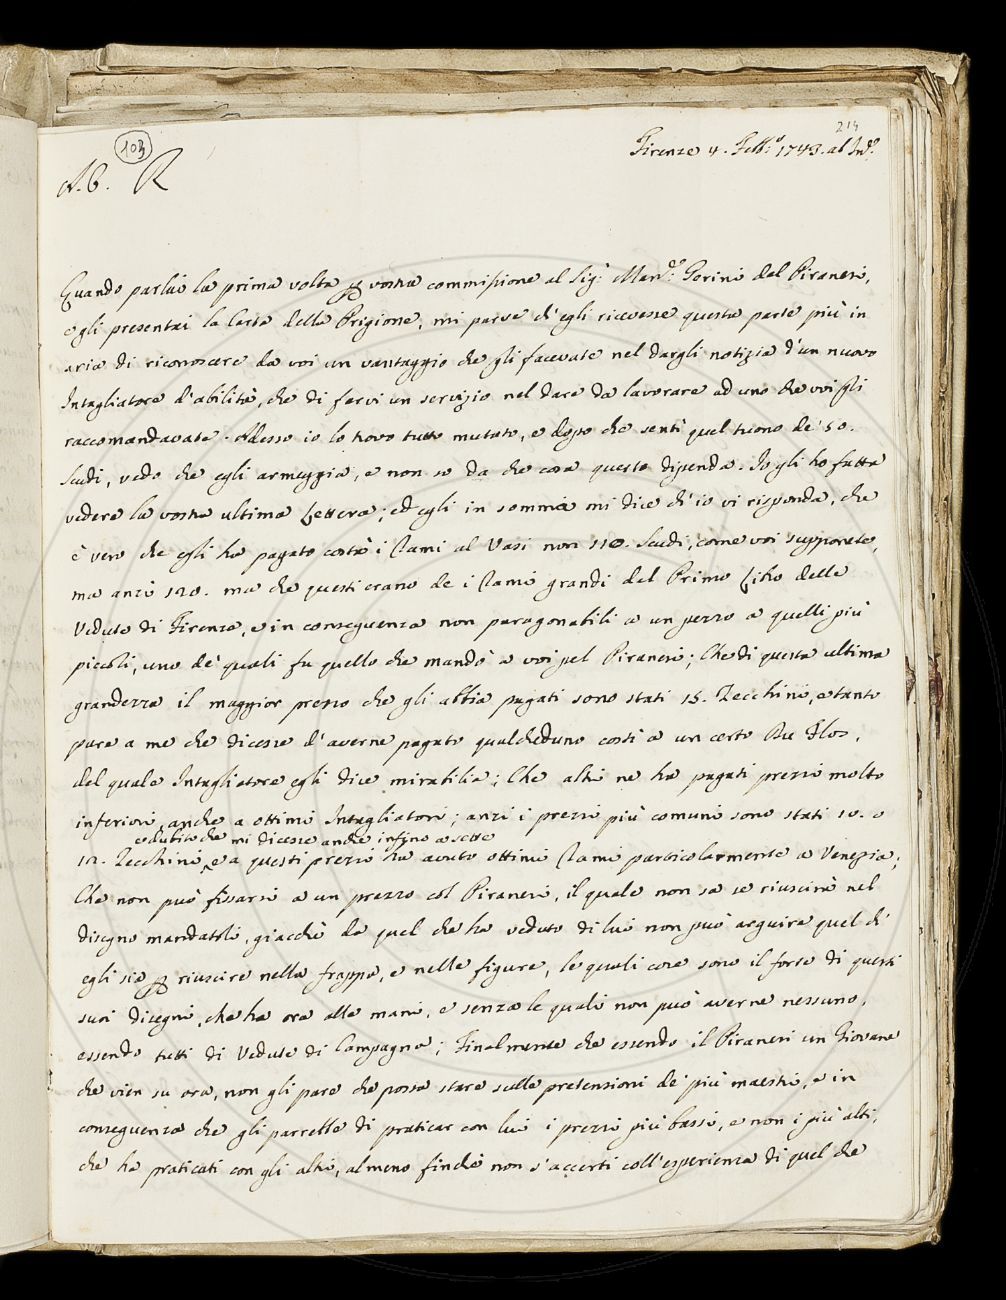 214
103
Firenze 4. Febb.º 1743. ab Ind.º
A. C. R
Quando parlai la prima volta per vostra commissione al Sig.r March.e Gerini del Piranesi,
e gli presentai la Carta della Prigione, mi parve ch'egli ricevesse questa parte più in
aria di riconoscere da voi un vantaggio che gli facevate nel dargli notizia d'un nuovo
Intagliatore d'abilità, che di farvi un servizio nel dare da lavorare ad uno che voi gli
raccomandavate. Adesso io lo trovo tutto mutato, e dopo che sentì quel tuono de' 50.
Scudi, vedo che egli armeggia, e non so da che cosa questo dipenda. Io gli ho fatta
vedere la vostra ultima Lettera; ed egli in somma mi dice ch'io vi risponda, che
è vero che egli ha pagato costà i Rami al Vasi non 110. Scudi, come voi supponete,
ma anzi 120. ma che questi erano de i Rami grandi del Primo Libro delle
Vedute di Firenze, e in conseguenza non paragonabili a un pezzo a quelli più
piccoli, uno de' quali fu quello che mandò a voi pel Piranesi; Che di questa ultima
grandezza il maggior prezzo che gli abbia pagati sono stati 15. Zecchini, e tanto
pare a me che dicesse d'averne pagato qualcheduno costì a un certo Du Flos,
del quale Intagliatore egli dice mirabilia; Che altri ne ha pagati prezzi molto
inferiori anche a ottimi Intagliatori; anzi i prezzi più comuni sono stati 10. o
e dubito che mi dicesse anche infino a sette
12. Zecchini, e a questi prezzi ha avuto ottimi Rami particolarmente a Venezia;
Che non può fissarsi a un prezzo col Piranesi, il quale non sa se riuscirà nel
disegno mandatoli, giacchè da quel che ha veduto di lui non può arguire quel ch'
egli sia per riuscire nella frappa, e nelle figure, le quali cose sono il forte di questi
suoi disegni, che ha ora alle mani, e senza le quali non può averne nessuno,
essendo tutti di Vedute di Campagna; Finalmente che essendo il Piranesi un Giovane
che vien su ora, non gli pare che possa stare sulle pretensioni de' più maestri, e in
conseguenza che gli parrebbe di praticar con lui i prezzi più bassi, e non i più alti,
che ha praticati con gli altri, almeno finchè non s'accerti coll'esperienza di quel che